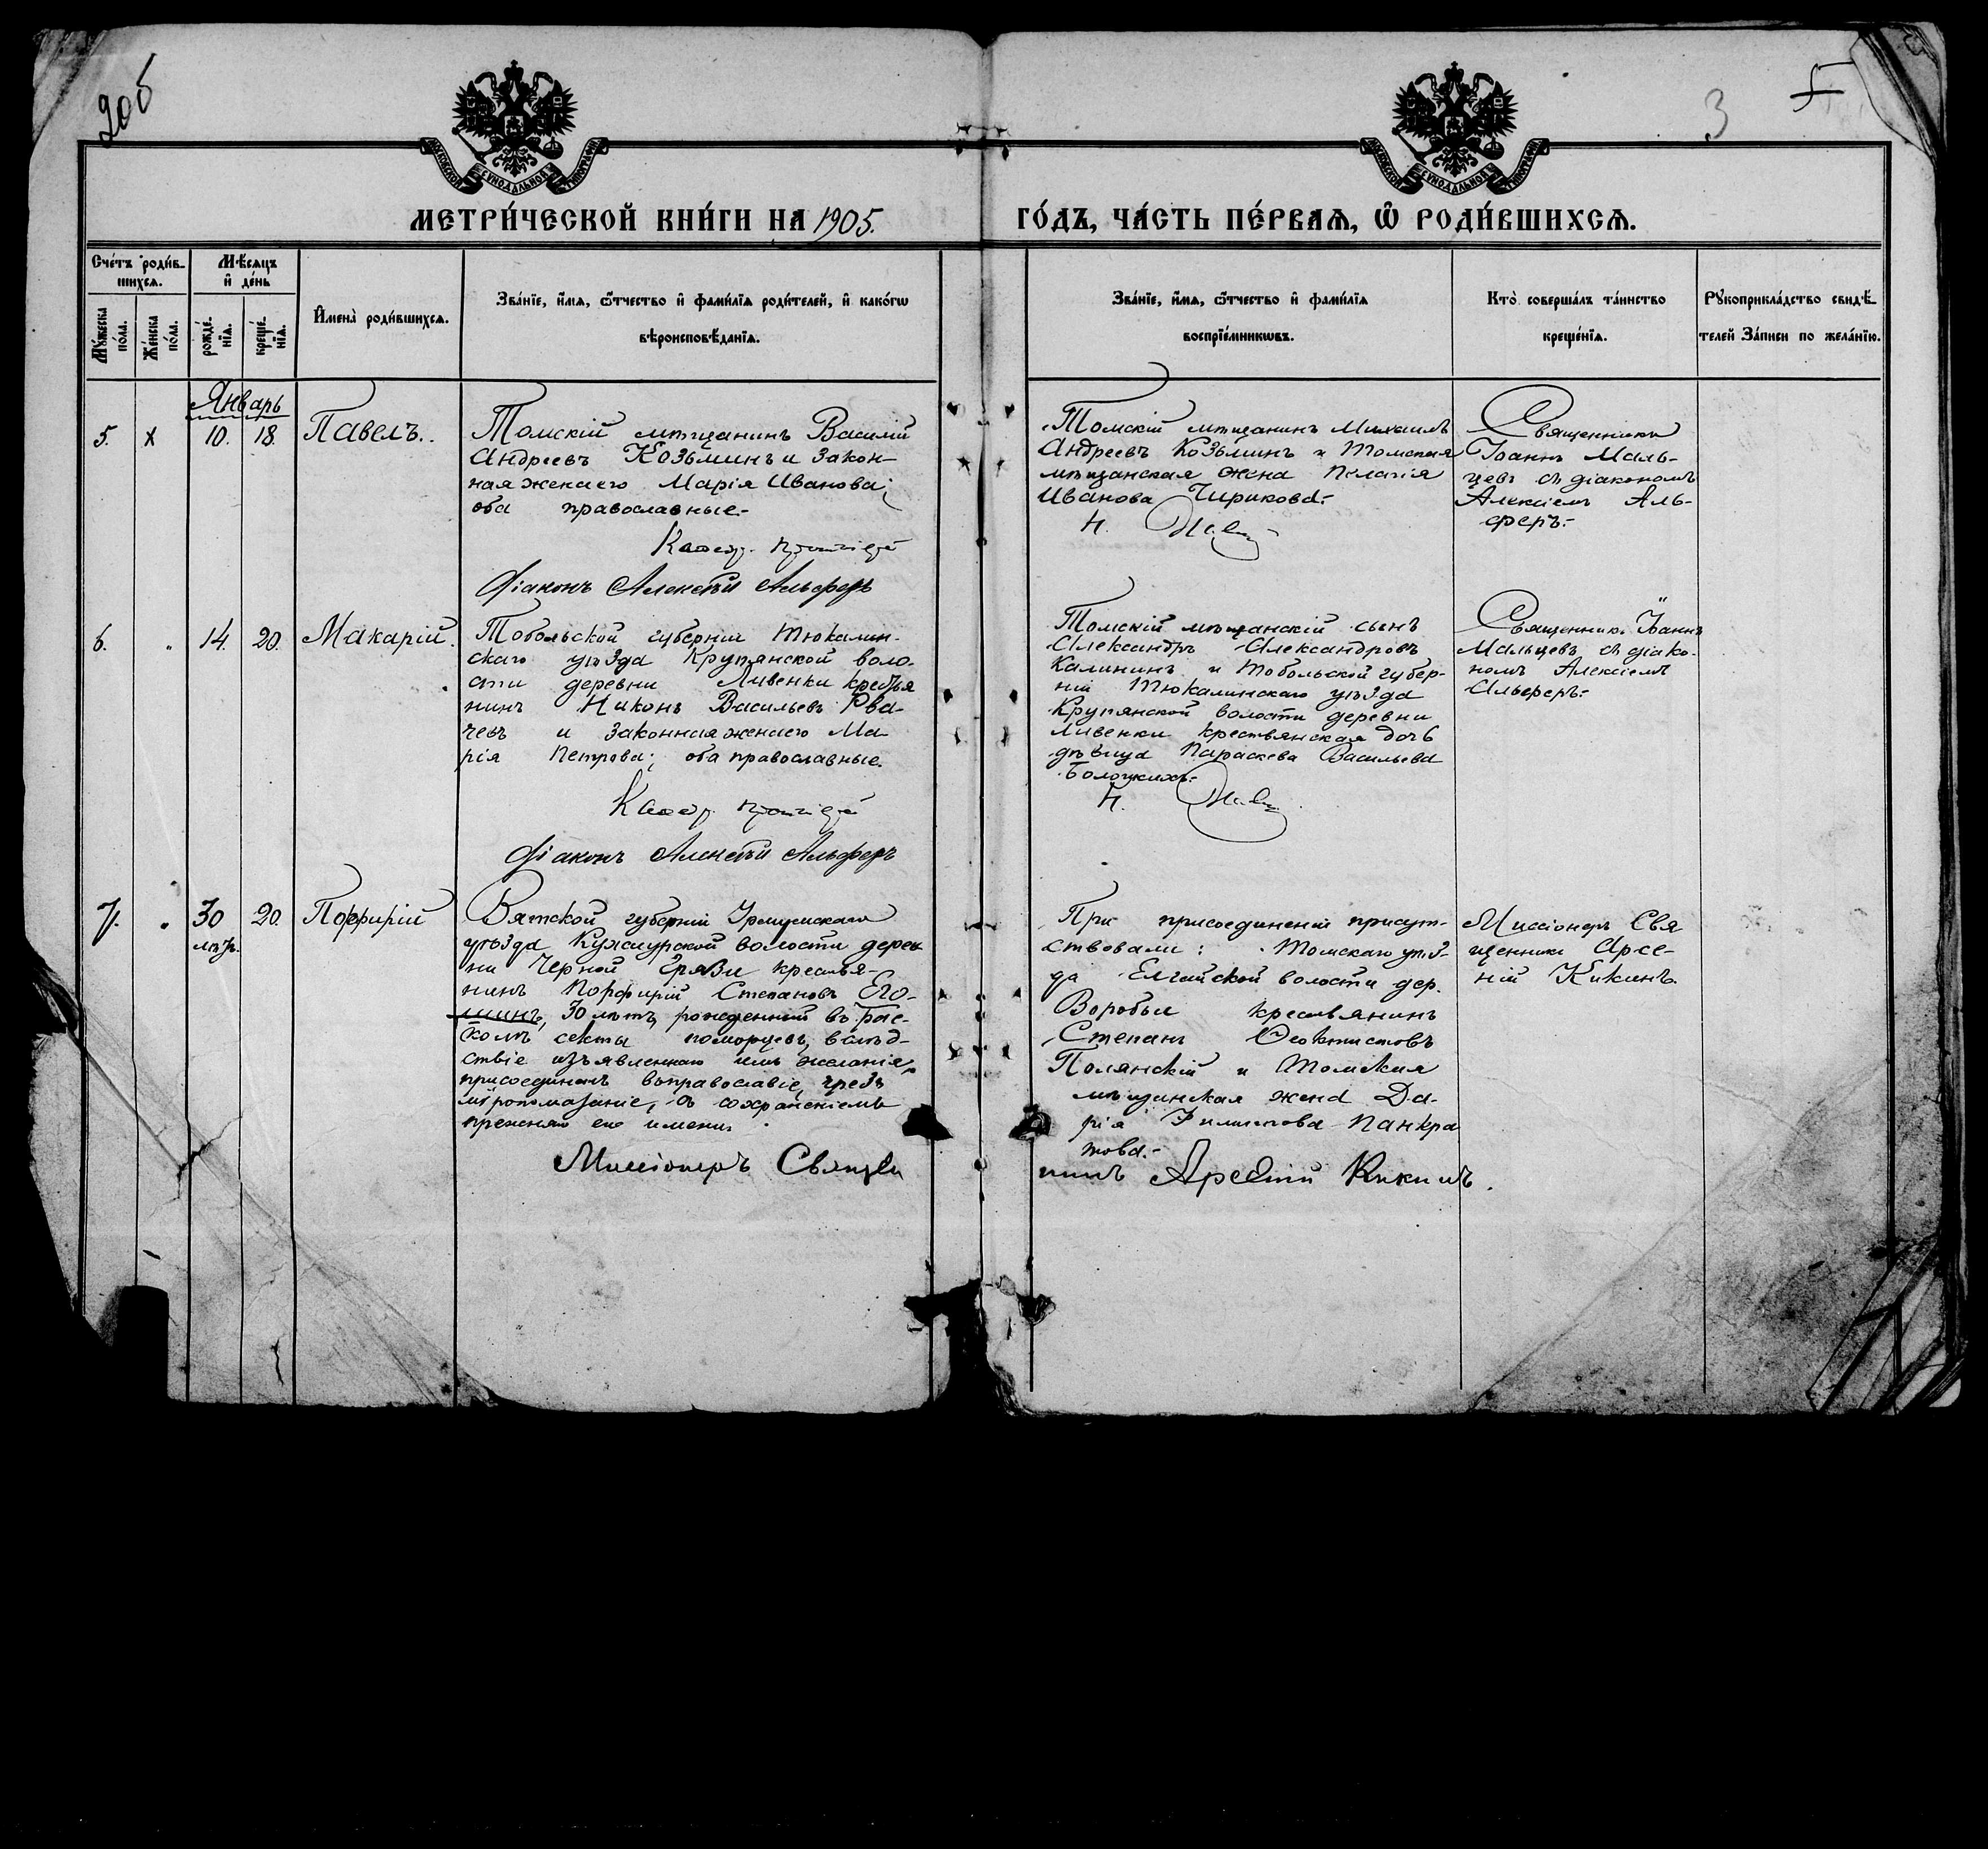 2об
3
5
МОСКОВСКОЙ СѴНОДАЛЬНОЙ ТИПОГРАФІИ
МОСКОВСКОЙ СѴНОДАЛЬНОЙ ТИПОГРАФІИ
МЕТРИ́ЧЕСКОЙ КНИ́ГИ НА 1905.
ГО́ДЪ, ЧА́СТЬ ПЕ́РВАѦ, Ѽ РОДИ́ВШИХСѦ.
Сче́тъ роди́в-
шихсѧ.
Мѣ́сѧцъ
и҆ де́нь
Мꙋ́жеска
по́ла.
Же́нска
по́ла.
рожде́-
нїѧ.
креще́-
нїѧ.
И҆мена̀ роди́вшихсѧ.
Зва́нїе, и҆́мѧ, ѻ҆́тчество и҆ фами́лїѧ роди́телей, и҆ како́гѡ
вѣроисповѣ́данїѧ.
Зва́нїе, и҆́мѧ, ѻ҆́тчество и҆ фами́лїѧ
воспрїе́мникѡвъ.
Кто̀ соверша́лъ та́инство
креще́нїѧ.
Рꙋкоприкла́дство свидѣ́-
телей За́писи по жела́нїю.
Январь
5. х 10. 18. Павелъ.
Томскій мѣщанинъ Василій
Андреевъ Козьминъ и закон-
ная жена его Марія Иванова;
оба православные.-
Каѳедр.
Діаконъ Алексѣй Альферъ
Томскій мѣщанинъ Михаилъ
Андреевъ Козьминъ и Томская
мѣщанская жена Пелагія
Иванова Чирикова.-
Священникъ
Іоаннъ Маль-
цевъ съ діакономъ
Алексіемъ Аль-
феръ.-
6. " 14. 20. Макарій.
Тобольской губерніи Тюкалин-
скаго уѣзда Крупянской воло-
сти деревни Ливенки крестья
нинъ Никонъ Васильевъ Рва-
чевъ и законная жена его Ма
рія Петрова; оба православные.
Каѳедр.
Діаконъ Алексѣй Альферъ
Томскій мѣщанскій сынъ
Александръ Александровъ
Калининъ и Тобольской губер-
ніи Тюкалинскаго уѣзда
Крупянской волости деревни
Ливенки крестьянская дочь
дѣвица Параскева Васильева
Священникъ Іоаннъ
Мальцевъ съ діако-
номъ Алексіемъ
Альферъ.-
7. " 30 20. Порфирій
лѣтъ.
Вятской губерніи Уржумскаго
уѣзда Кужнурской волости дерев
ни Черной Грязи крестья-
нинъ Порфирій Степановъ Его-
шинъ, 30 лѣтъ, рожденный въ рас-
колѣ секты поморцевъ, вслѣд-
ствіе изъявленнаго имъ желанія,
присоединенъ въ православіе, чрезъ
мѵропомазаніе, съ сохраненіемъ
прежняго его имени.
Миссіонеръ Священ
никъ Арсеній Кикинъ.
При присоединеніи присут-
ствовали: Томскаго уѣз-
да Елгайской волости дер.
Воробьи крестьянинъ
Степанъ Ѳеоктистовъ
Полянскій и Томская
мѣщанская жена Да-
рія Филиппова Панкра
това.-
Миссіонеръ Свя
щенникъ Арсе-
ній Кикинъ.